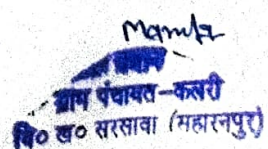 Mamta
प्रधान
ग्राम पंचायत-कलरी
वि० ख० सरसावा (सहारनपुर)